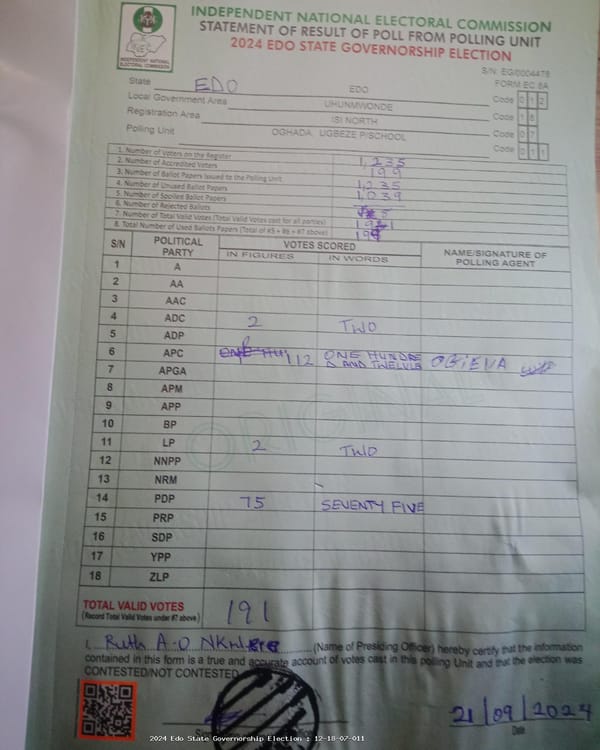 INDEPENDENT NATIONAL ELECTORAL COMMISSION
STATEMENT OF RESULT OF POLL FROM POLLING UNIT
2024 EDO STATE GOVERNORSHIP ELECTION
INDEPENDENT NATIONAL
ELECTORAL COMMISSION
S/N: EG/0004478
FORM EC 8A
State EDO EDO Code 0 1 2
Local Government Area UHUNMWONDE Code 1 8
Registration Area ISI NORTH Code 0 7
Polling Unit OGHADA, UGBEZE P/SCHOOL Code 0 1 1
1. Number of Voters on the Register 1,235
2. Number of Accredited Voters 199
3. Number of Ballot Papers Issued to the Polling Unit 1,235
4. Number of Unused Ballot Papers 1,039
5. Number of Spoiled Ballot Papers
6. Number of Rejected Ballots
7. Number of Total Valid Votes (Total Valid Votes cast for all parties)
8. Total Number of Used Ballots Papers (Total of #5 + #6 + #7 above)
S/N POLITICAL PARTY VOTES SCORED NAME/SIGNATURE OF POLLING AGENT
IN FIGURES IN WORDS
1 A
2 AA
3 AAC
4 ADC 2 TWO
5 ADP
6 APC 112 ONE HUNDRE
D AND TWELVE OGIEVA
7 APGA
8 APM
9 APP
10 BP
11 LP 2 TWO
12 NNPP
13 NRM
14 PDP 75 SEVENTY FIVE
15 PRP
16 SDP
17 YPP
18 ZLP
ORIGINAL
TOTAL VALID VOTES 191
(Record Total Valid Votes under #7 above)
I, Ruth A-O (Name of Presiding Officer) hereby certify that the information
contained in this form is a true and accurate account of votes cast in this polling Unit and that the election was
CONTESTED/NOT CONTESTED
21/09/2024
Date
2024 Edo State Governorship Election : 12-18-07-011